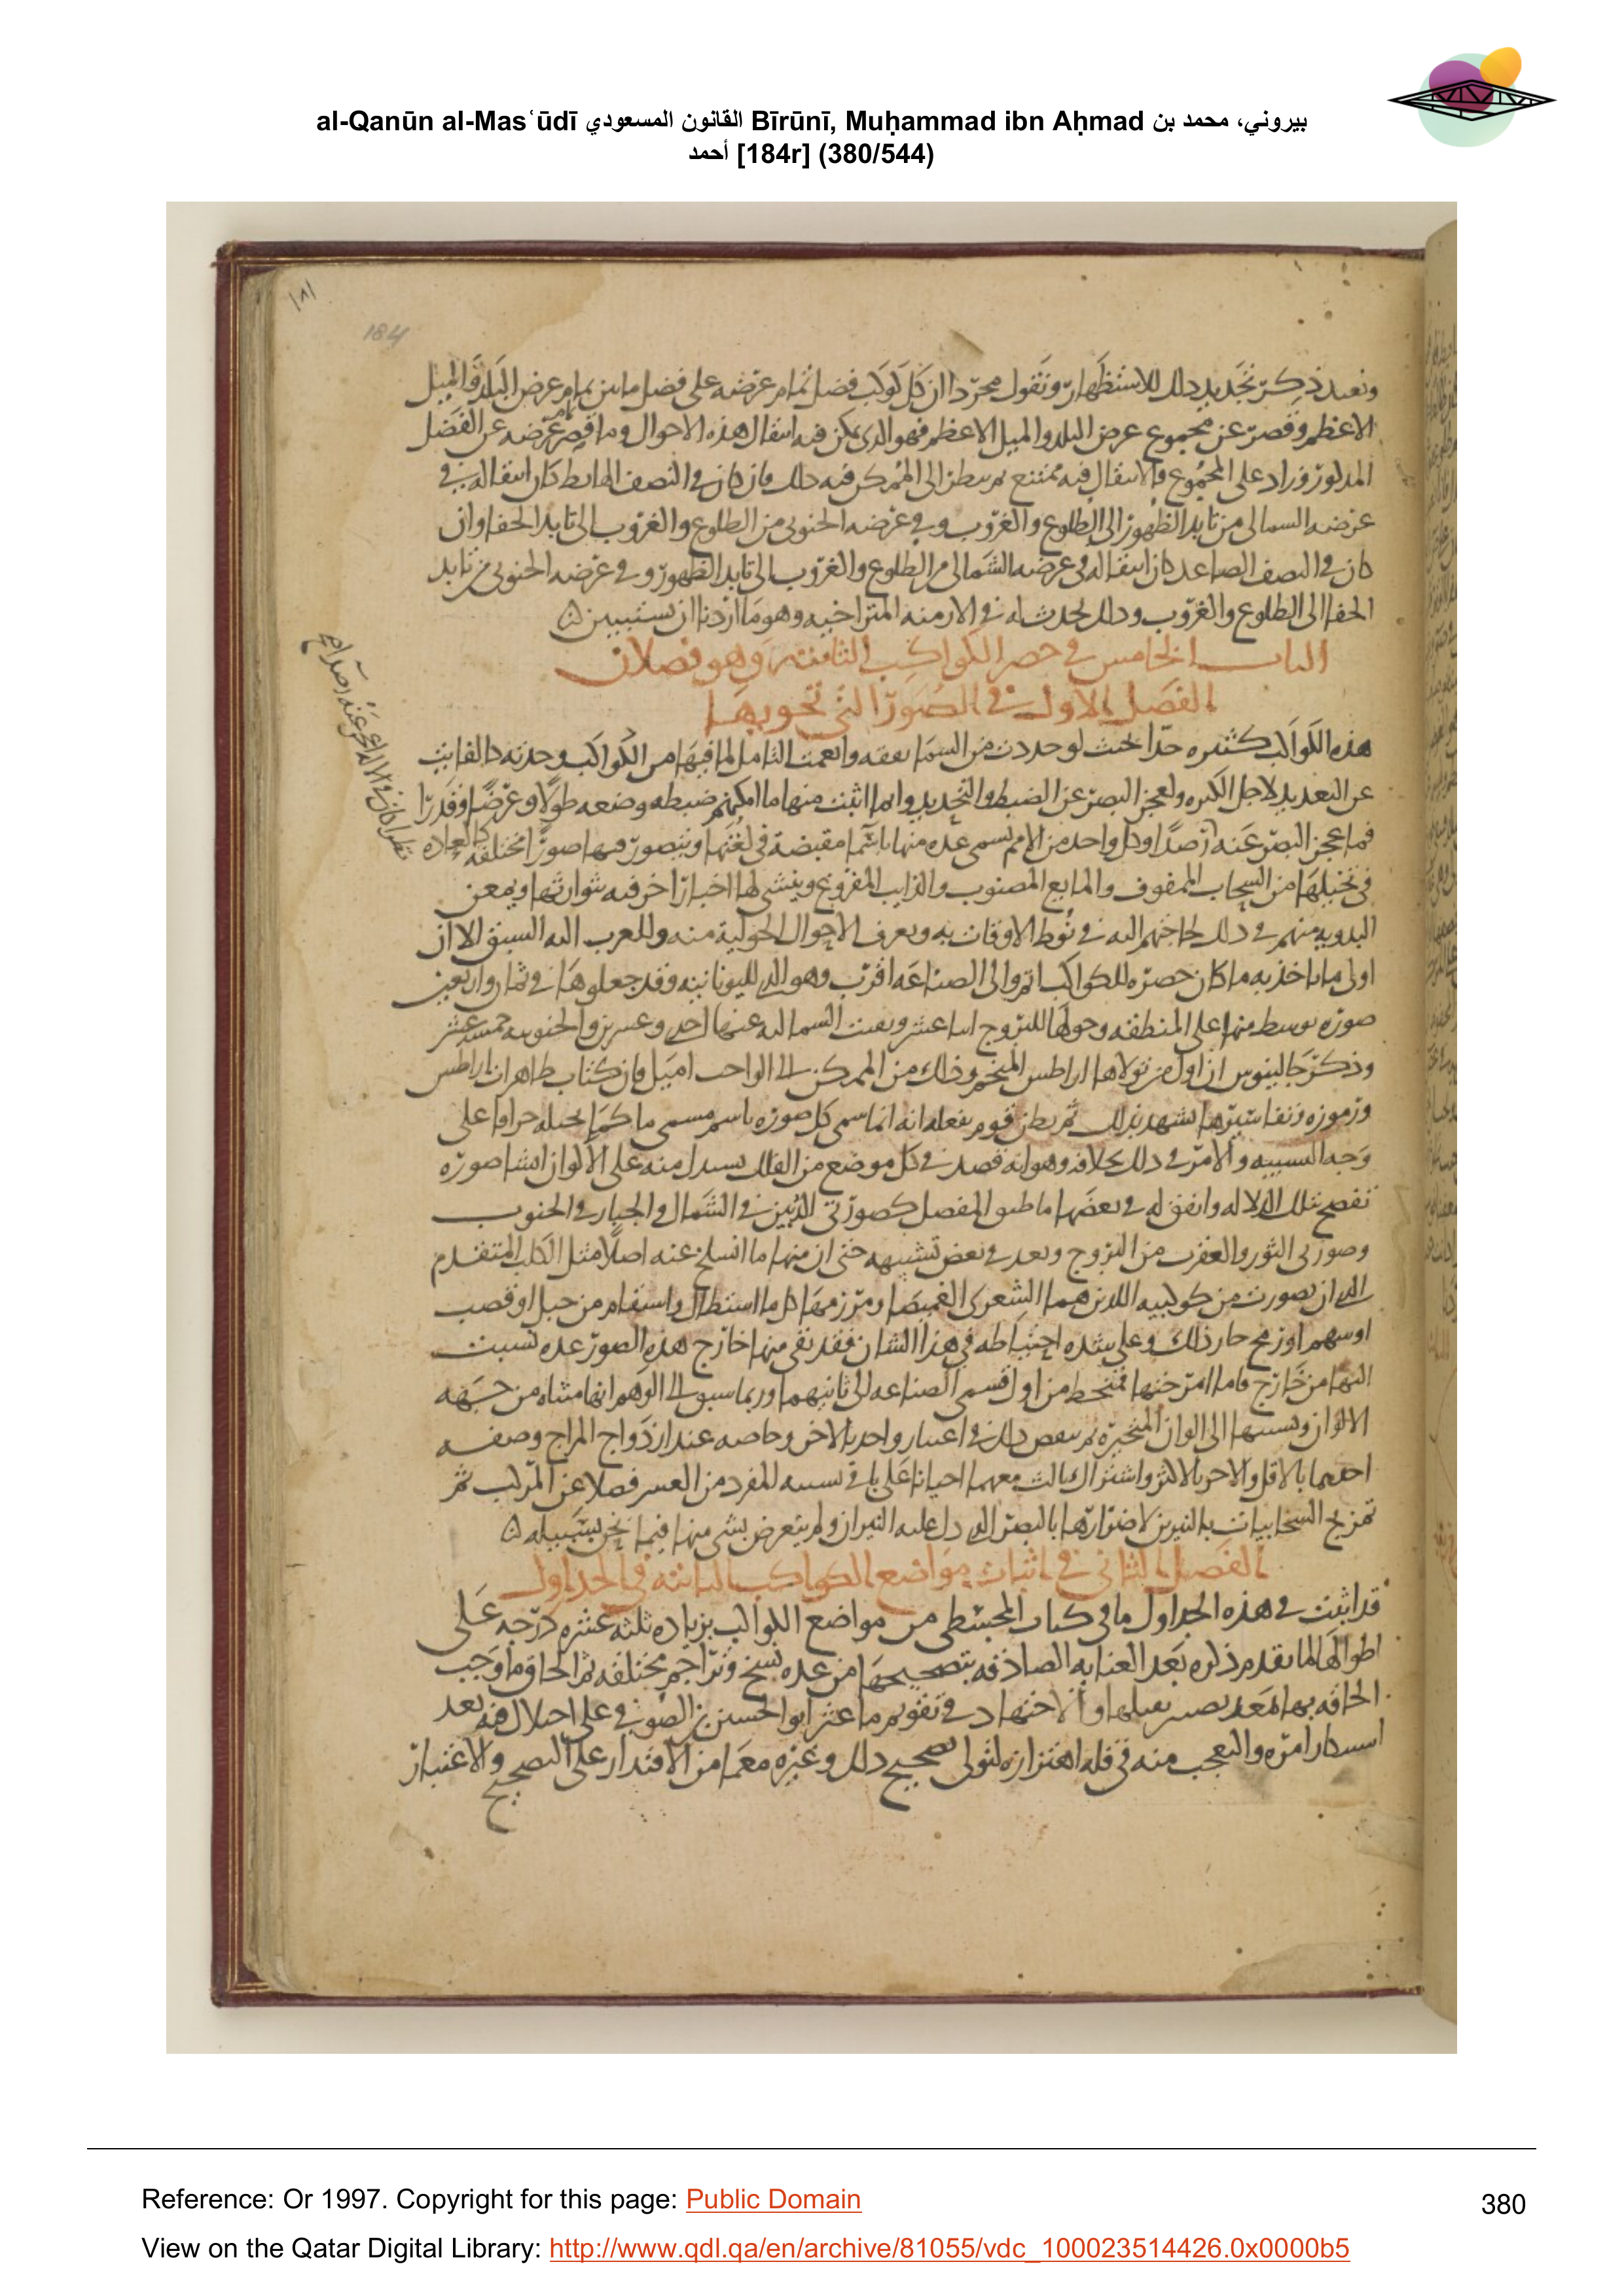 al-Qanūn al-Masʿūdī القانون المسعودي Bīrūnī, Muḥammad ibn Aḥmad بيروني، محمد بن
أحمد [184r] (380/544)
184
ونعيد ذكر تجديد ذلك للاستظهار ونقول مجردا ان كل كوكب فضل تمام عرضه على فضل ما بين تمام عرض البلد والميل
الاعظم وقصر عن مجموع عرض البلد والميل الاعظم فهو الذى يمكن فيه انتقال هذه الاحوال وما قصر تمام عرضه عن الفضل
المذكور وزاد على المجموع فالانتقال فيه ممتنع ثم ينظر الى الممكن فيه ذلك فان كان فى النصف الهابط كان انتقاله فى
عرضه الشمالى من تابد الظهور الى الطلوع والغروب وفى عرضه الجنوبى من الطلوع والغروب الى تابد الخفا وان
كان فى النصف الصاعد كان انتقاله فى عرضه الشمالى من الطلوع والغروب الى تابد الظهور وفى عرضه الجنوبى من تابد
الخفا الى الطلوع والغروب وذلك يحدث له فى الازمنه المتراخيه وهو ما اردنا ان نستبين ه
الباب الخامس فى حصر الكواكب الثابته وهو فصلان
الفصل الاول فى الصور التى تحويها
هذه الكواكب كثيره جدا بحيث لو حددت من السما بقعه وانعمت التامل لما فيها من الكواكب وجدته كالفايت
عن التعديد لاجل الكثره ولعجز البصر عن الضبط والتحديد وانما اثبت منها ما امكنهم ضبطه وضعه طولا وعرضا وقدرا
فما عجز البصر عنه رصدا وكل واحد من الامم يسمى عده منها باسما مقتضبة فى لغتها ويتصور فيها صورا مختلفه كالعاده
فى تخيلها من السحاب الملفوف والمايع المصبوب والذايب المفروغ وينشى لها اخبارا خرفيه يتوارثها ويمعن
البدويه منهم فى ذلك لحاجتهم اليه فى نوط الاوقات به وتعرف الاحوال الحولية منه وللعرب اليه السبق الا ان
اولى ما ناخذ به ما كان حصره للكواكب اتم والى الصناعه اقرب وهو الذى لليونانيه وقد جعلوها فى ثمان واربعين
صوره توسط منها على المنطقه وحولها للبروج اثنا عشر وبقيت الشماليه عنها احدى وعشرين والجنوبيه خمسه عشر
وذكر جالينوس ان اول من تولاها اراطس المنجم وذلك من الممكن الى الواجب اميل فان كتاب ظاهرات اراطس
ورموزه وتفاسيرها تشهد بذلك ثم يظن قوم بفعله انه انما سمى كل صوره باسم مسمى ما كما يخيله جزافا على
وجه التشبيه والامر فى ذلك بخلافه وهو انه قصد فى كل موضع من الفلك يستدل منه على الاكوان انشا صوره
تفصح بتلك الدلاله واتفق له فى بعضها ما طبق المفصل كصورتى الدبين فى الشمال والجبار فى الجنوب
وصورتى الثور والعقرب من البروج وبعد فى بعض تشبيهه حتى ان منها ما انسلخ عنه اصلا مثل الكلب المتقدم
الذى ان تصورت من كوكبيه اللذين هما الشعرى الغميصا ومرزمها كل ما استطال واستقام من حبل او قصب
او سهم او رمح جاز ذلك وعلى شده احتياطه فى هذا الشان فقد بقى منها خارج هذه الصور عده نسبت
اليها من خارج فاما امزجتها فتنحط من اول قسمى الصناعه الى ثانيهما وربما سبق الى الوهم انها مثناه من جهه
الالوان ونسبتها الى الوان المتحيره ثم ينقص ذلك فى اعتبار واحد بالاخر وخاصه عند ازدواج المزاج وصفه
احدهما بالاقل والاخر بالاكثر واشتراك ثالث معهما احيانا على باقى نسبه للمفرد من العسر فضلا عن المركب ثم
تمزيج السحابيات بالنيرين لاضرارها بالبصر الذى دل عليه النيران ولم يتعرض بشى منها فيما نحن بسبيله ه
الفصل الثانى فى اثبات مواضع الكواكب الثابته فى الجداول
قد اثبتت فى هذه الجداول ما فى كتاب المجسطى من مواضع الكواكب بزياده ثلثه عشره درجه على
اطوالها لما تقدم ذكره بعد العنايه الصادقه بتصحيحها من عده نسخ وتراجم مختلفه ثم الحاق ما وجب
الحاقه بها اوالاجتهاد فى تقويم ما عثر ابو الحسين بن الصوفى على اختلال فيه بعد
امره والتعجب منه فى قله اهتزازه لتولى تصحيح ذلك وغيره معما من الاقتدار على التصحيح والاعتبار
Reference: Or 1997. Copyright for this page: Public Domain
380
View on the Qatar Digital Library: http://www.qdl.qa/en/archive/81055/vdc_100023514426.0x0000b5